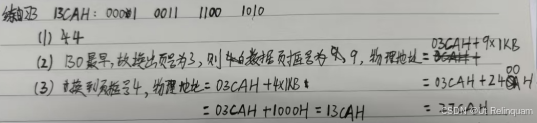 练习3 13CAH: 00001 0011 1100 1010
(1) 44
(2) 130最早,故换出页号为3,则 页框号为 9, 物理地址 = 03CAH + 9×1KB
(3) 换到页框号4, 物理地址 = 03CAH + 4×1KB = 03CAH + 2400H
= 03CAH + 1000H = 13CAH = 27CAH
CSDN @Ut Relinquam